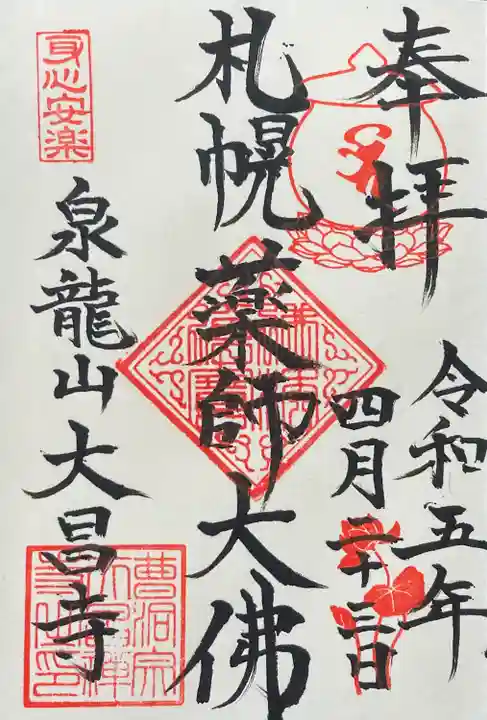 奉拝
令和五年
四月二十三日
札幌
薬師大佛
身心安楽
泉龍山大昌寺
曹洞宗